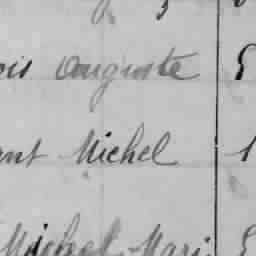 ois Auguste 5
ant Michel 1
Michel Mari 5